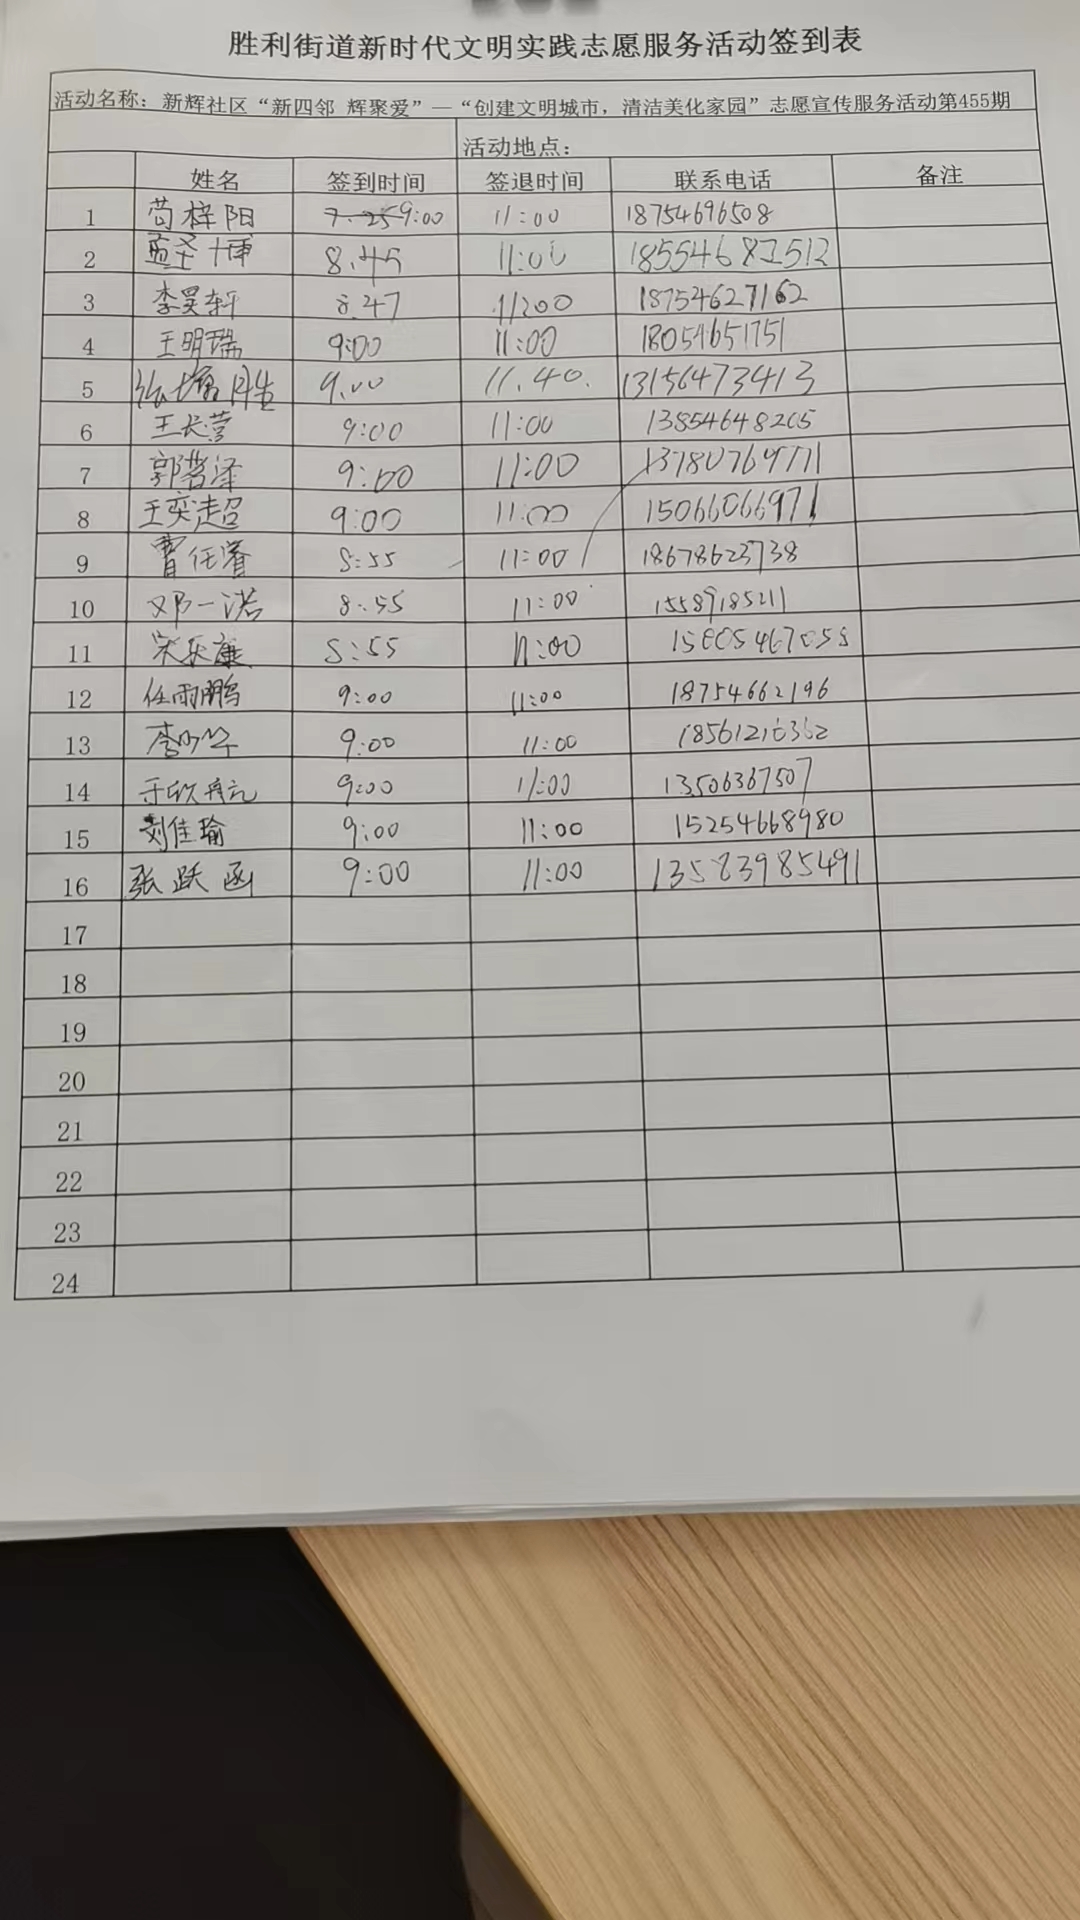 胜利街道新时代文明实践志愿服务活动签到表
活动名称：新辉社区“新四邻 辉聚爱”—“创建文明城市，清洁美化家园”志愿宣传服务活动第455期
活动地点：
姓名 签到时间 签退时间 联系电话 备注
1 苟梓阳 7.25 9:00 11:00 18754696508
2 孟圣博 8.45 11:00 18554682512
3 李昊轩 8.47 11:00 18754627162
4 王明瑞 9:00 11:00 18054651751
5 张 9.00 11.40. 13156473413
6 王长营 9:00 11:00 13854648205
7 郭 泽 9:00 11:00 13780769771
8 王奕超 9:00 11:00 15066066971
9 曹任 8:55 11:00 18678623738
10 邓一诺 8:55 11:00 15589185211
11 宋乐 8:55 11:00
12 任雨鹏 9:00 11:00 18754662196
13 李少华 9:00 11:00
14 于欣 9:00 11:00 13506367507
15 刘佳瑜 9:00 11:00 15254668980
16 张跃函 9:00 11:00 13583985491
17
18
19
20
21
22
23
24